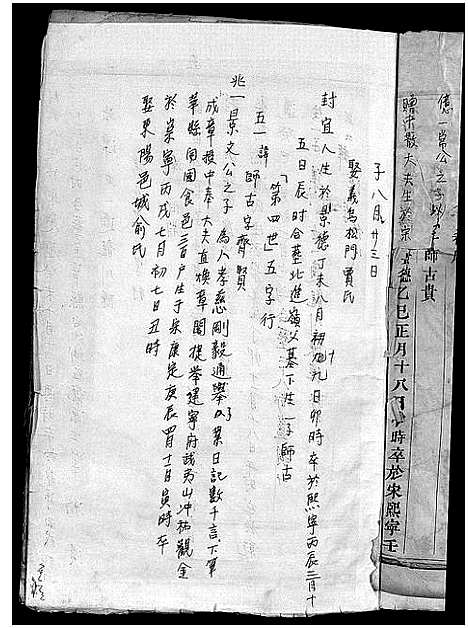 億一常公之子以
師古貴
贈中散大夫生於宋景德乙巳正月十八日 時卒於宋熙寧壬
子八月廿三日
娶義烏松門賈氏
封宜人生於景德丁未八月初九日卯時卒於熙寧丙辰二月十
五日辰時合墓北進嶺父墓下生一子師古
「第四世」五字行
五一諱師古字齊賢
兆一景文公之子 為人孝慈剛毅通舉子業日記數千言下筆
成章授中奉大夫直煥章閣提舉建寧府武夷山冲祐觀金
華縣開國食邑三百戶生于宋康定庚辰四月十一日寅時卒
於崇寧丙戌七月初七日丑時
娶東陽邑城俞氏